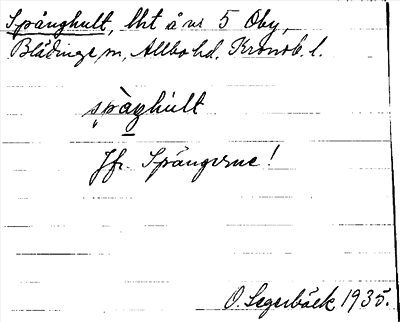 Spånghult, lht å nr 5 Oby,
Blädinge sn, Allbo hd. Kronob. l.
spàŋhult
Jfr. Spångerne!
O. Segerbäck 1935.